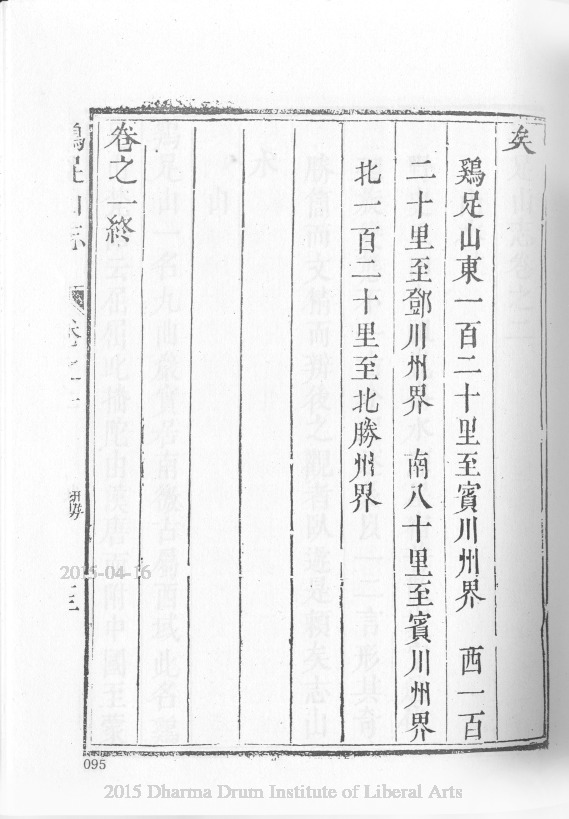 矣
鷄足山東一百二十里至賓川州界　西一百
二十里至鄧川州界　南八十里至賓川州界
北一百二十里至北勝州界
卷之一終
鷄足山志
卷之一
2015-04-16
095
2015 Dharma Drum Institute of Liberal Arts